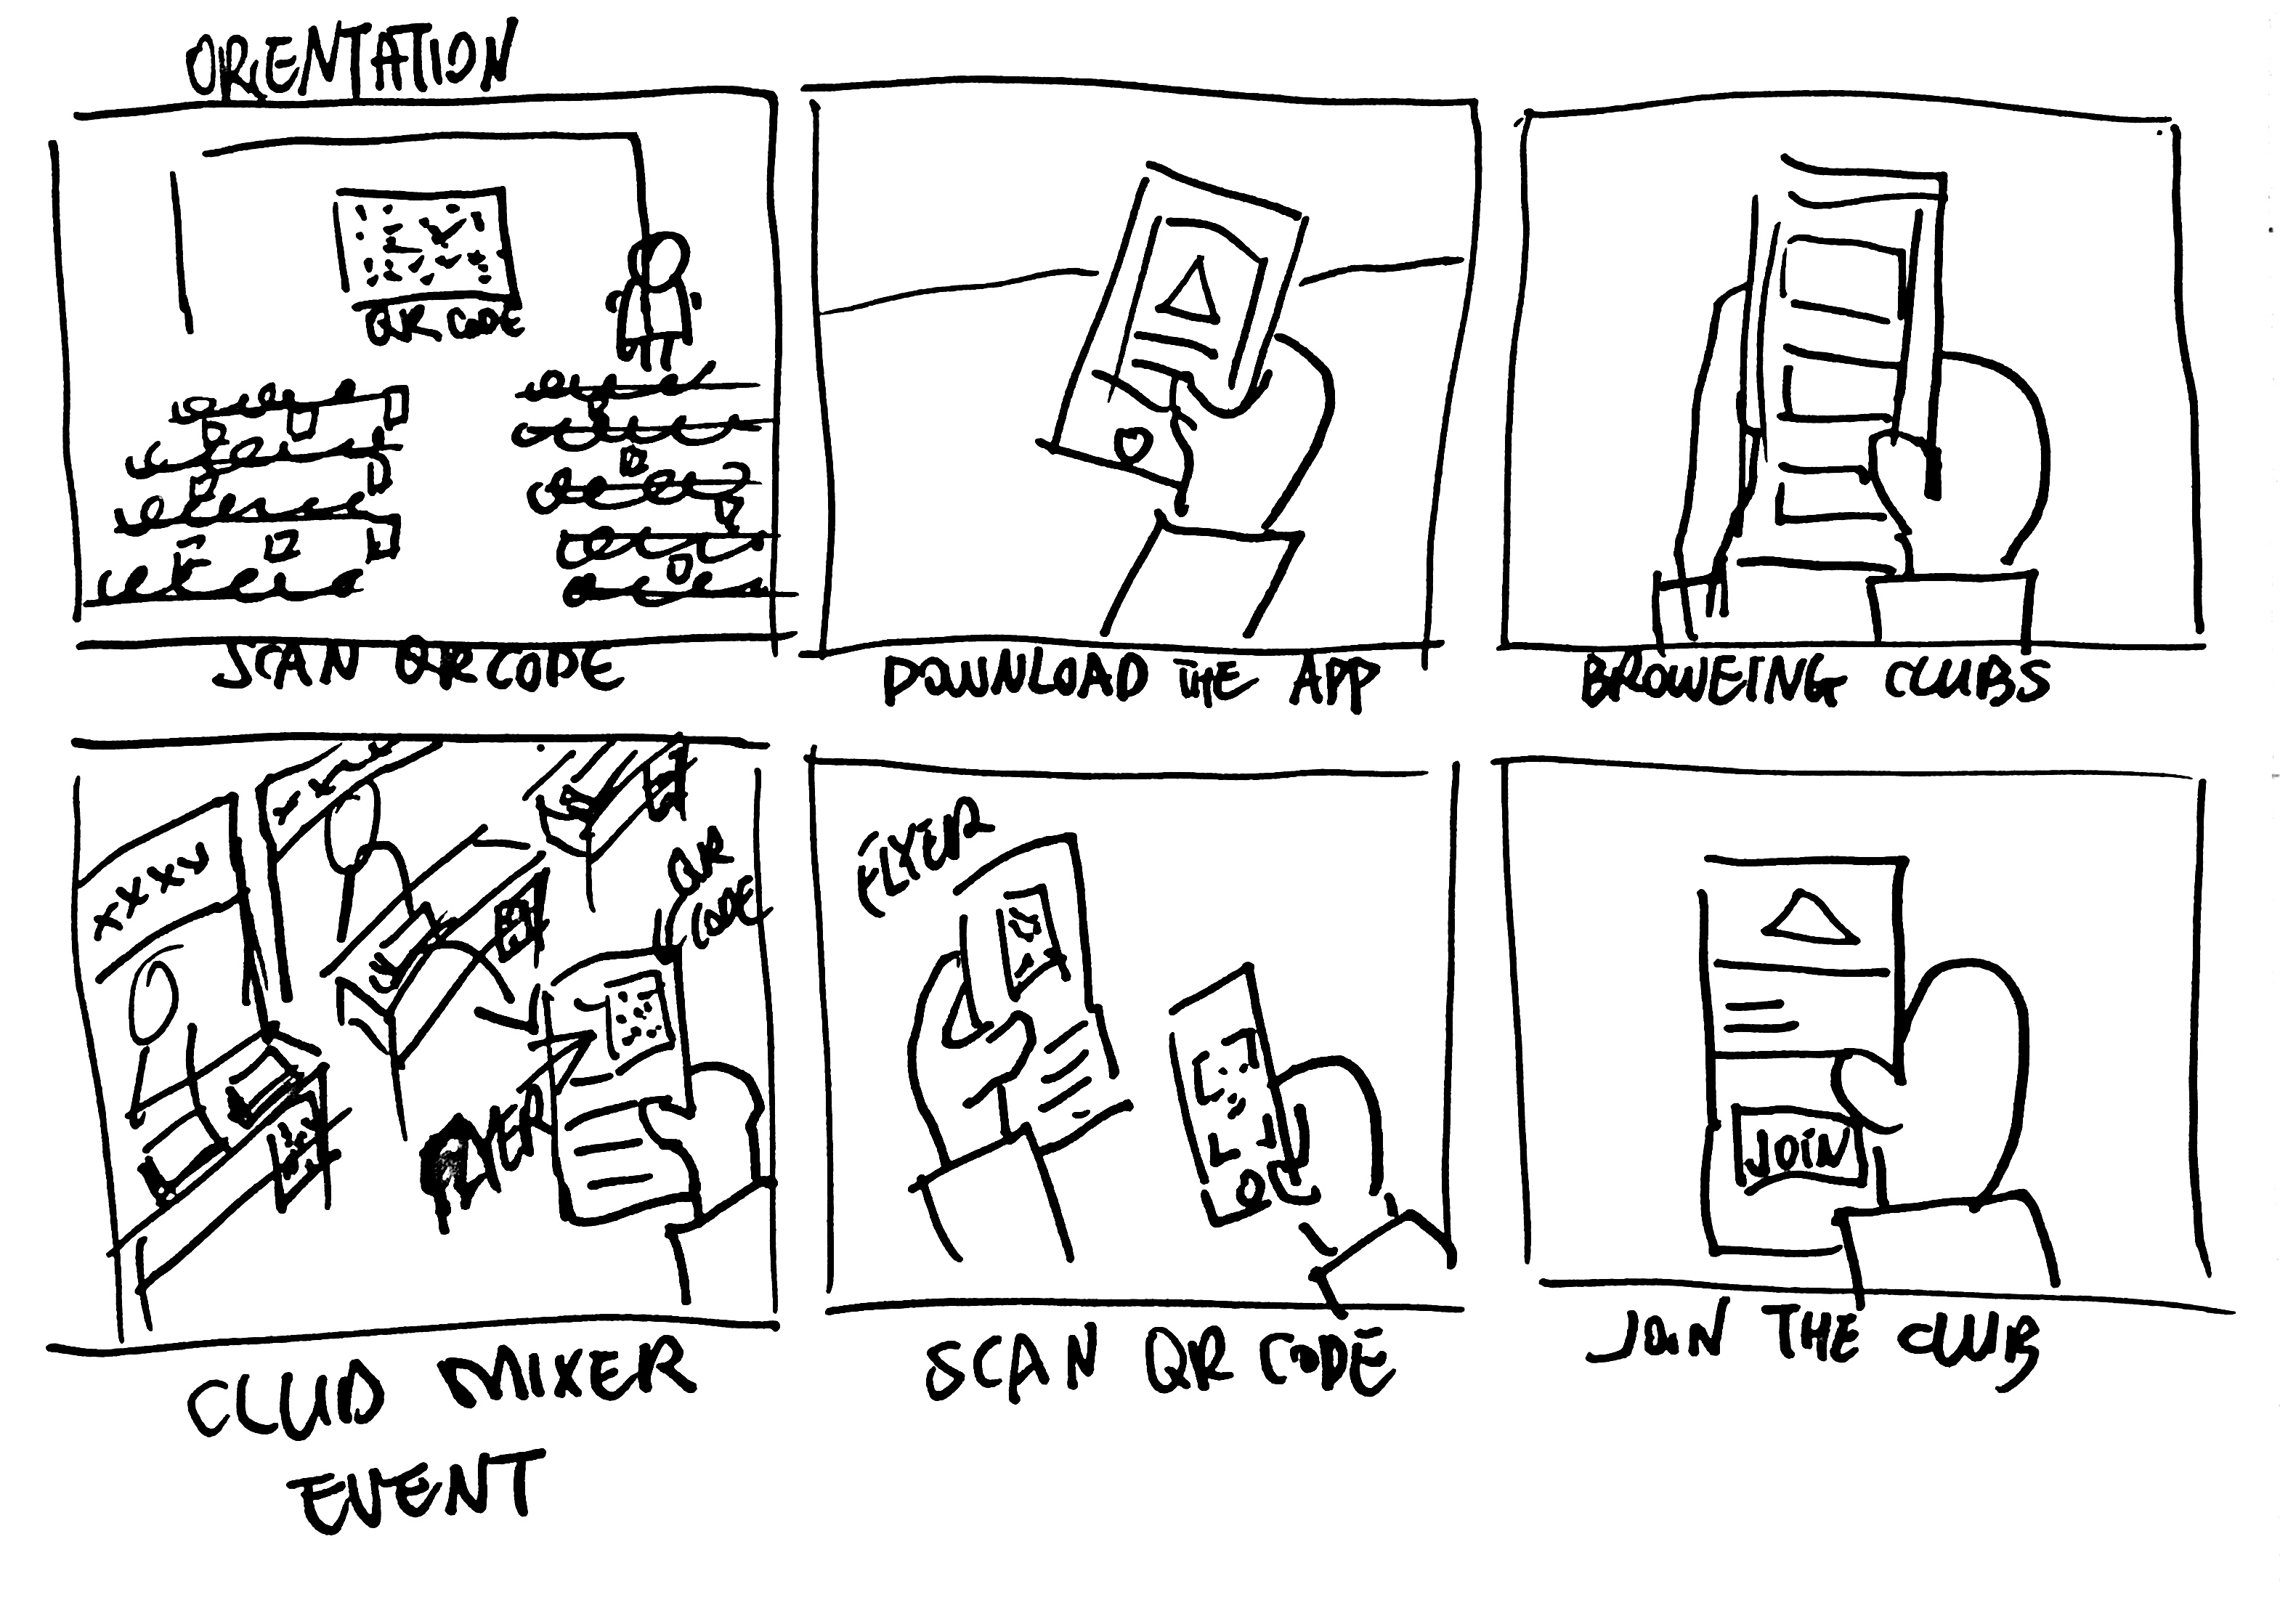 ORIENTATION
QR CODE
SCAN QR CODE
DOWNLOAD THE APP
BROWEING CLUBS
XXXV
QR
CODE
FLYER
CLUB MIXER
EVENT
FLYER
SCAN QR CODE
JOIN
JOIN THE CLUB